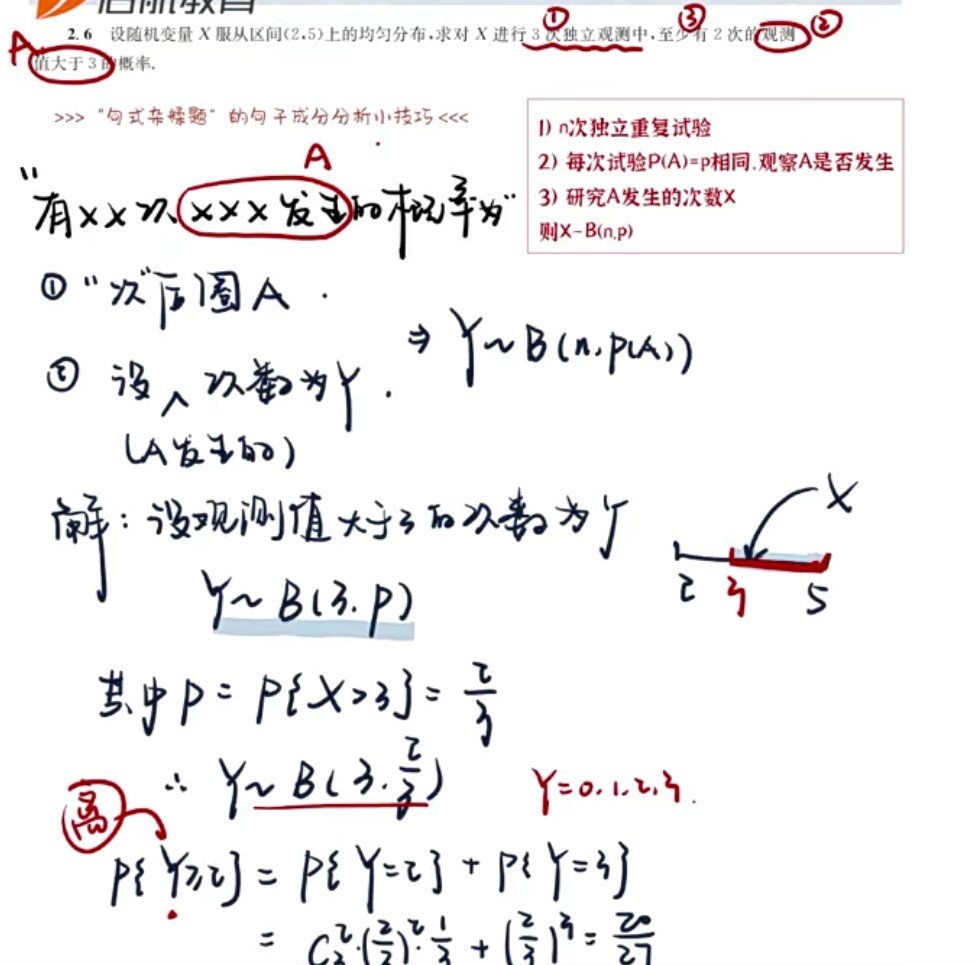 启航教育
2.6 设随机变量 X 服从区间(2,5)上的均匀分布,求对 X 进行 3 次独立观测中,至少有 2 次的观测
值大于 3 的概率.
① ③ ②
A
>>> "句式杂糅题" 的句子成分分析小技巧 <<<
1) n次独立重复试验
2) 每次试验P(A)=p相同.观察A是否发生
3) 研究A发生的次数X
则X~B(n,p)
A
"有××次×××发生的概率为"
① "次"后圈A.
② 设∧次数为Y.
(A发生的)
⇒ Y~B(n,P(A))
解:设观测值大于3的次数为Y
Y~B(3,p)
X
2 3 5
其中P=P{X>3}=2/3
∴ Y~B(3,2/3)
Y=0,1,2,3.
离
P{Y≥2}=P{Y=2}+P{Y=3}
=C₃²·(2/3)²·1/3+(2/3)³=20/27